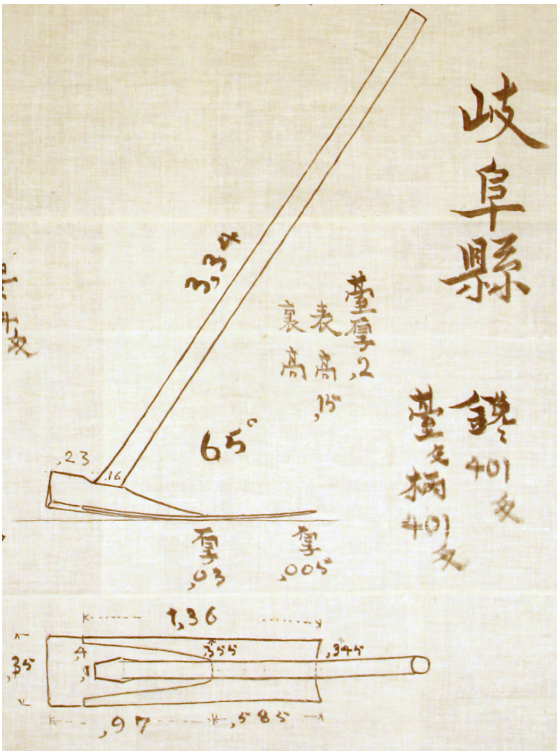 岐阜縣
鑱 401 匁
臺及柄 401 匁
臺厚 ,2
表高 ,15
裏高
3,34
65°
,23
,16
厚 ,03
厚 ,005
1,36
,35
,4
,355
,345
,97
,585